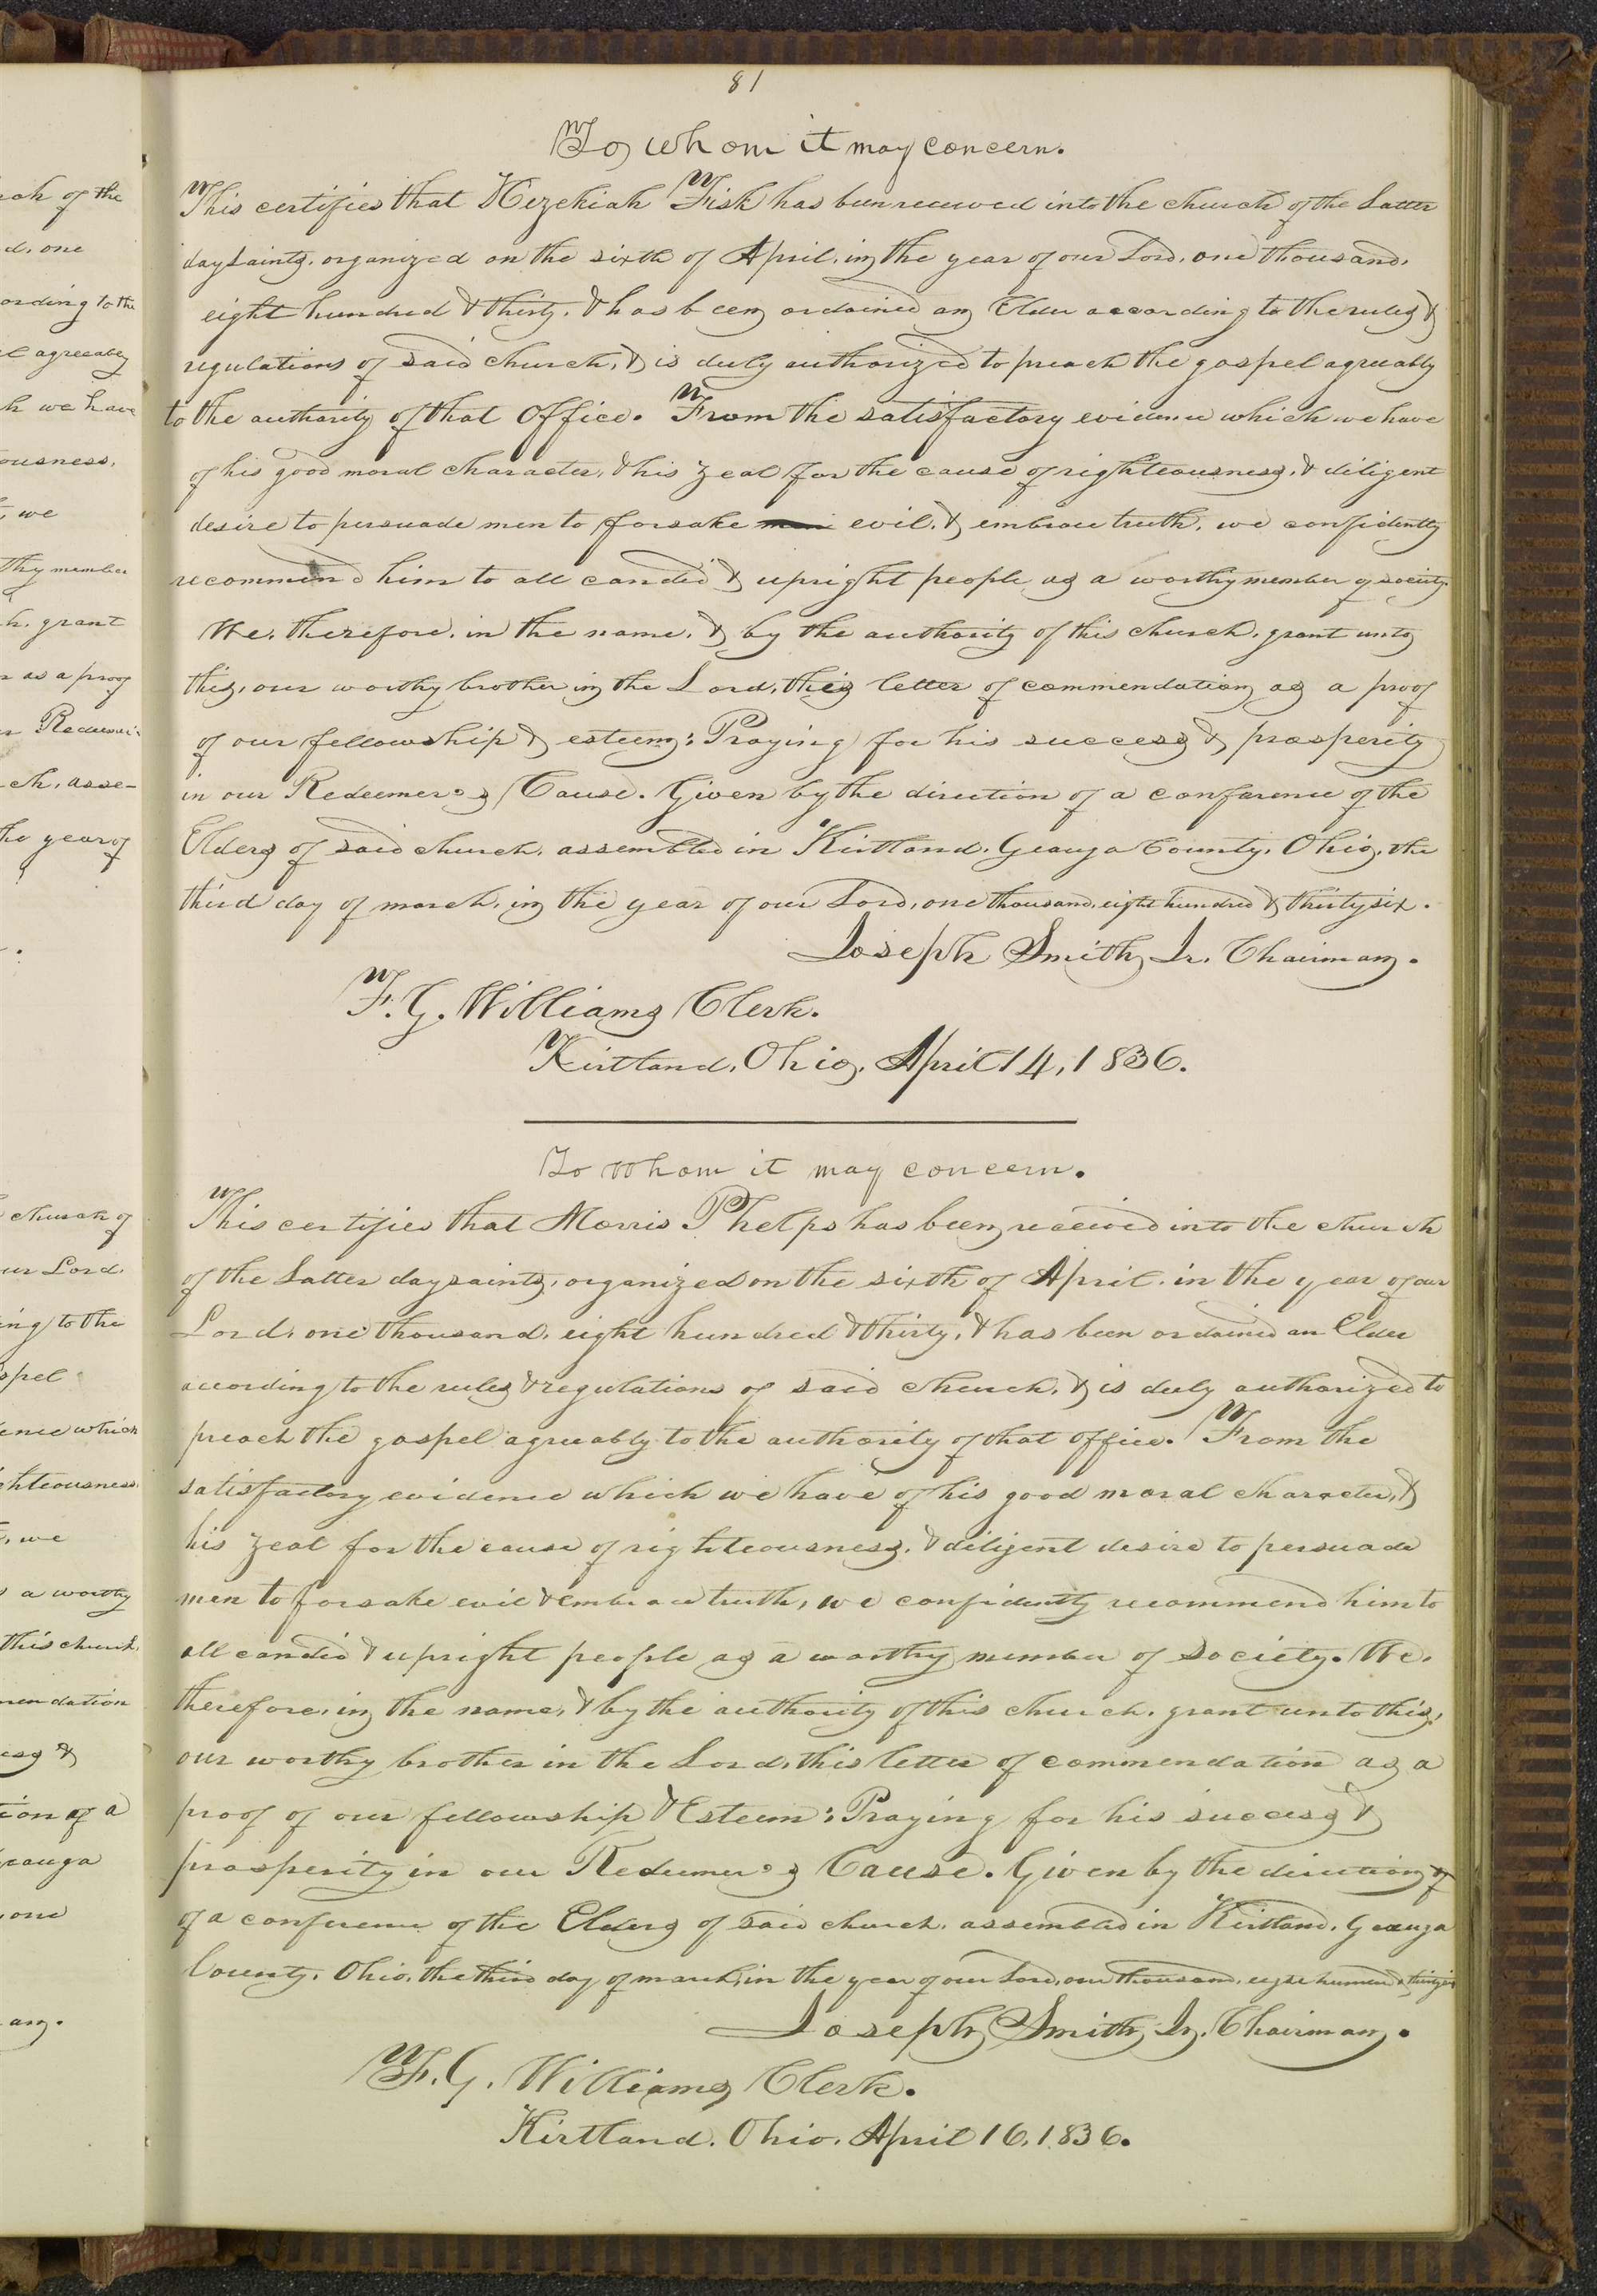 81
To whom it may concern.
This certifies that Hezekiah Fisk has been received into the church of the Latter
day saints, organized on the sixth of April, in the year of our Lord, one thousand,
eight hundred & thirty, & has been ordained an Elder according to the rules &
regulations of said church, & is duly authorized to preach the gospel agreeably
to the authority of that Office. From the satisfactory evidence which we have
of his good moral character, & his zeal for the cause of righteousness, & diligent
desire to persuade men to forsake evil, & embrace truth, we confidently
recommend him to all candid & upright people as a worthy member of society.
We, therefore, in the name, & by the authority of this church, grant unto
this, our worthy brother in the Lord, this letter of commendation as a proof
of our fellowship & esteem: Praying for his success & prosperity
in our Redeemer's Cause. Given by the direction of a conference of the
Elders of said church, assembled in Kirtland, Geauga County, Ohio, the
third day of march, in the year of our Lord, one thousand, eight hundred & thirty six.
Joseph Smith, Jr. Chairman.
F. G. Williams Clerk.
Kirtland, Ohio, April 14, 1836.
To whom it may concern.
This certifies that Morris Phelps has been received into the church
of the Latter day saints, organized on the sixth of April, in the year of our
Lord, one thousand, eight hundred & thirty, & has been ordained an Elder
according to the rules & regulations of said church, & is duly authorized to
preach the gospel agreeably to the authority of that office. From the
satisfactory evidence which we have of his good moral character, &
his zeal for the cause of righteousness, & diligent desire to persuade
men to forsake evil & embrace truth, we confidently recommend him to
all candid & upright people as a worthy member of society. We,
therefore, in the name, & by the authority of this church, grant unto this,
our worthy brother in the Lord, this letter of commendation as a
proof of our fellowship & Esteem: Praying for his success &
prosperity in our Redeemer's Cause. Given by the direction of
of a conference of the Elders of said church, assembled in Kirtland, Geauga
County, Ohio, the third day of march, in the year of our Lord, one thousand, eight hundred & thirty six
Joseph Smith, Jr. Chairman.
F. G. Williams Clerk.
Kirtland, Ohio, April 16, 1836.